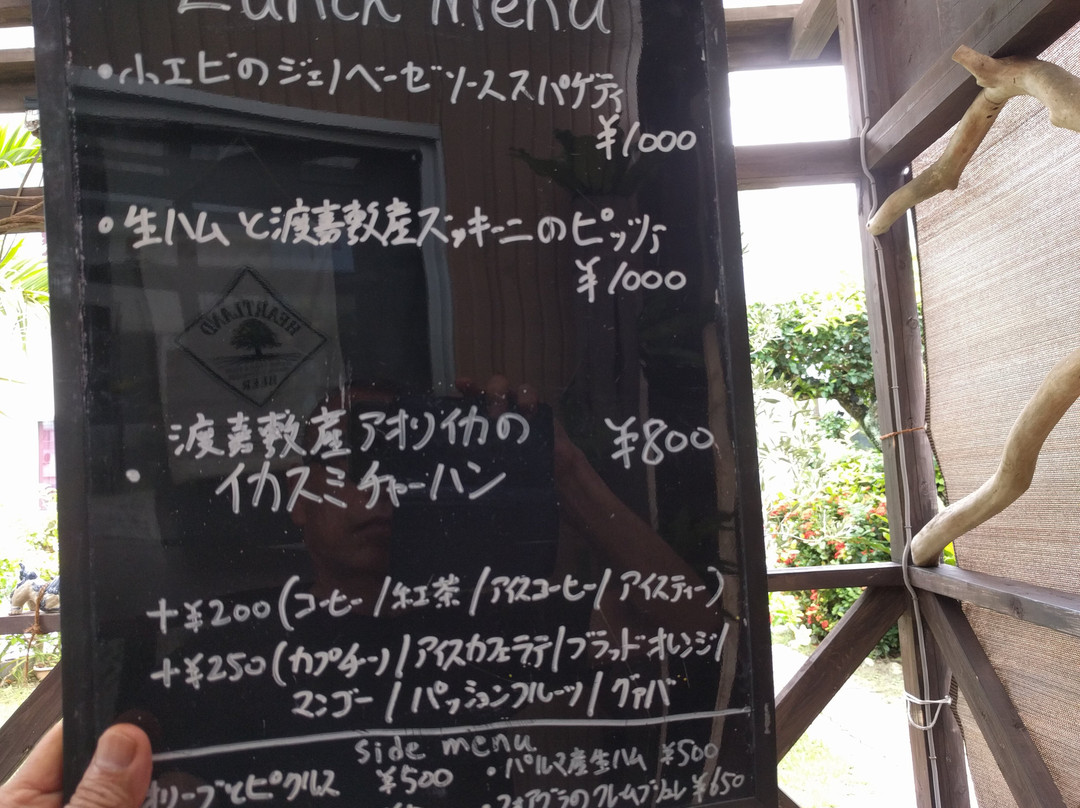 Lunch Menu
・小エビのジェノベーゼソーススパゲティ
¥1000
・生ハムと渡嘉敷産ズッキーニのピッツァ
¥1000
渡嘉敷産アオリイカの ¥800
・イカスミチャーハン
+¥200(コーヒー/紅茶/アイスコーヒー/アイスティー)
+¥250(カプチーノ/アイスカフェラテ/ブラッドオレンジ/
マンゴー/パッションフルーツ/グァバ
side menu
オリーブとピクルス ¥500 ・パルマ産生ハム ¥500
・フォアグラのクレームブリュレ ¥650
HEARTLAND
BEER